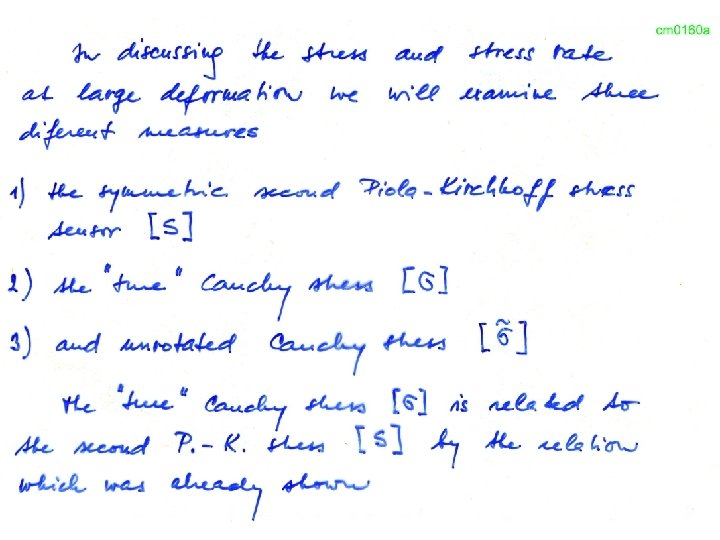 cm0160a
In discussing the stress and stress rate
at large deformation we will examine three
diferent measures
1) the symmetric second Piola-Kirchhoff stress
tensor [S]
2) the "true" Cauchy stress [σ]
3) and unrotated Cauchy stress [σ̃]
The "true" Cauchy stress [σ] is related to
the second P.-K. stress [S] by the relation
which was already shown